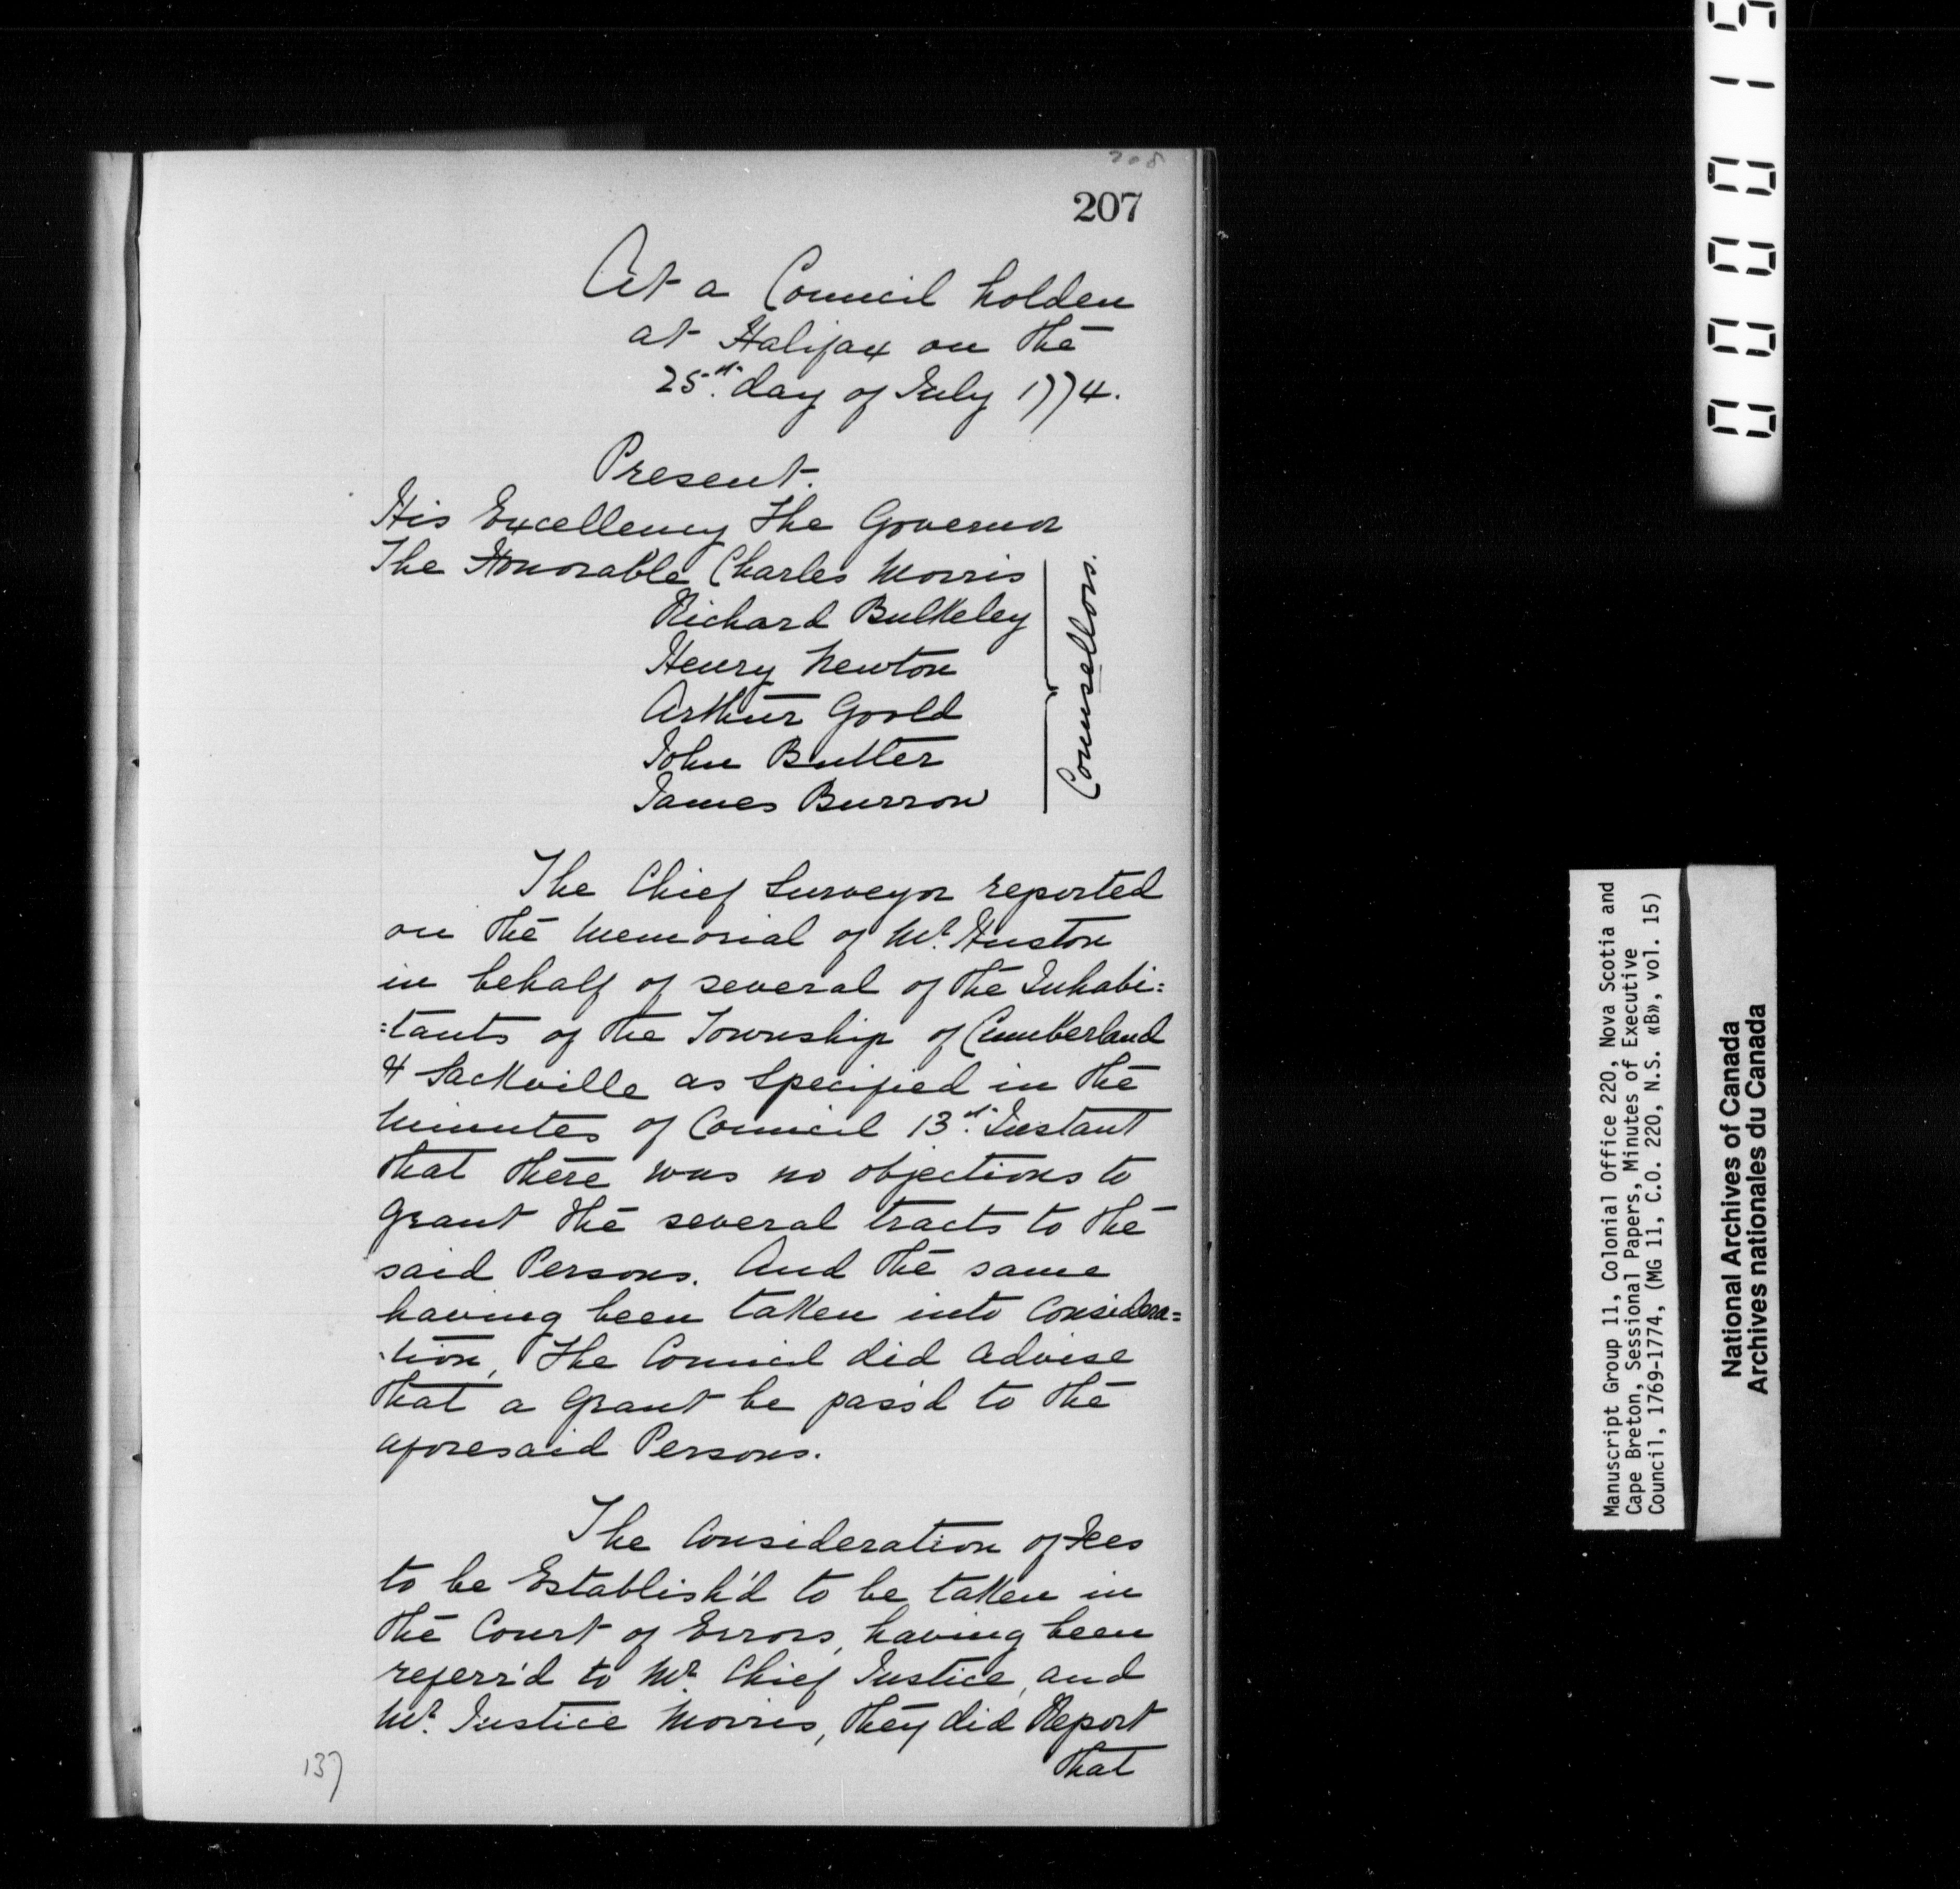 208
207
At a Council holden
at Halifax on the
25th day of July 1774.
Present.
His Excellency The Governor
The Honorable Charles Morris
Richard Bulkeley
Henry Newton
Arthur Goold
John Butler
James Burrow
Counsellors.
The Chief Surveyor reported
on the Memorial of Mr. Huston
in behalf of several of the Inhabi=
=tants of the Township of Cumberland
& Sackville as Specified in the
Minutes of Council 13th Instant
that there was no objections to
Grant the several tracts to the
said Persons. And the same
having been taken into Considera=
-tion, The Council did advise
that a Grant be pass'd to the
aforesaid Persons.
The Consideration of Fees
to be Establish'd to be taken in
the Court of Errors, having been
referr'd to Mr. Chief Justice, and
Mr. Justice Morris, they did Report
that
137
00015
Manuscript Group 11, Colonial Office 220, Nova Scotia and
Cape Breton, Sessional Papers, Minutes of Executive
Council, 1769-1774, (MG 11, C.O. 220, N.S. «B», vol. 15)
National Archives of Canada
Archives nationales du Canada